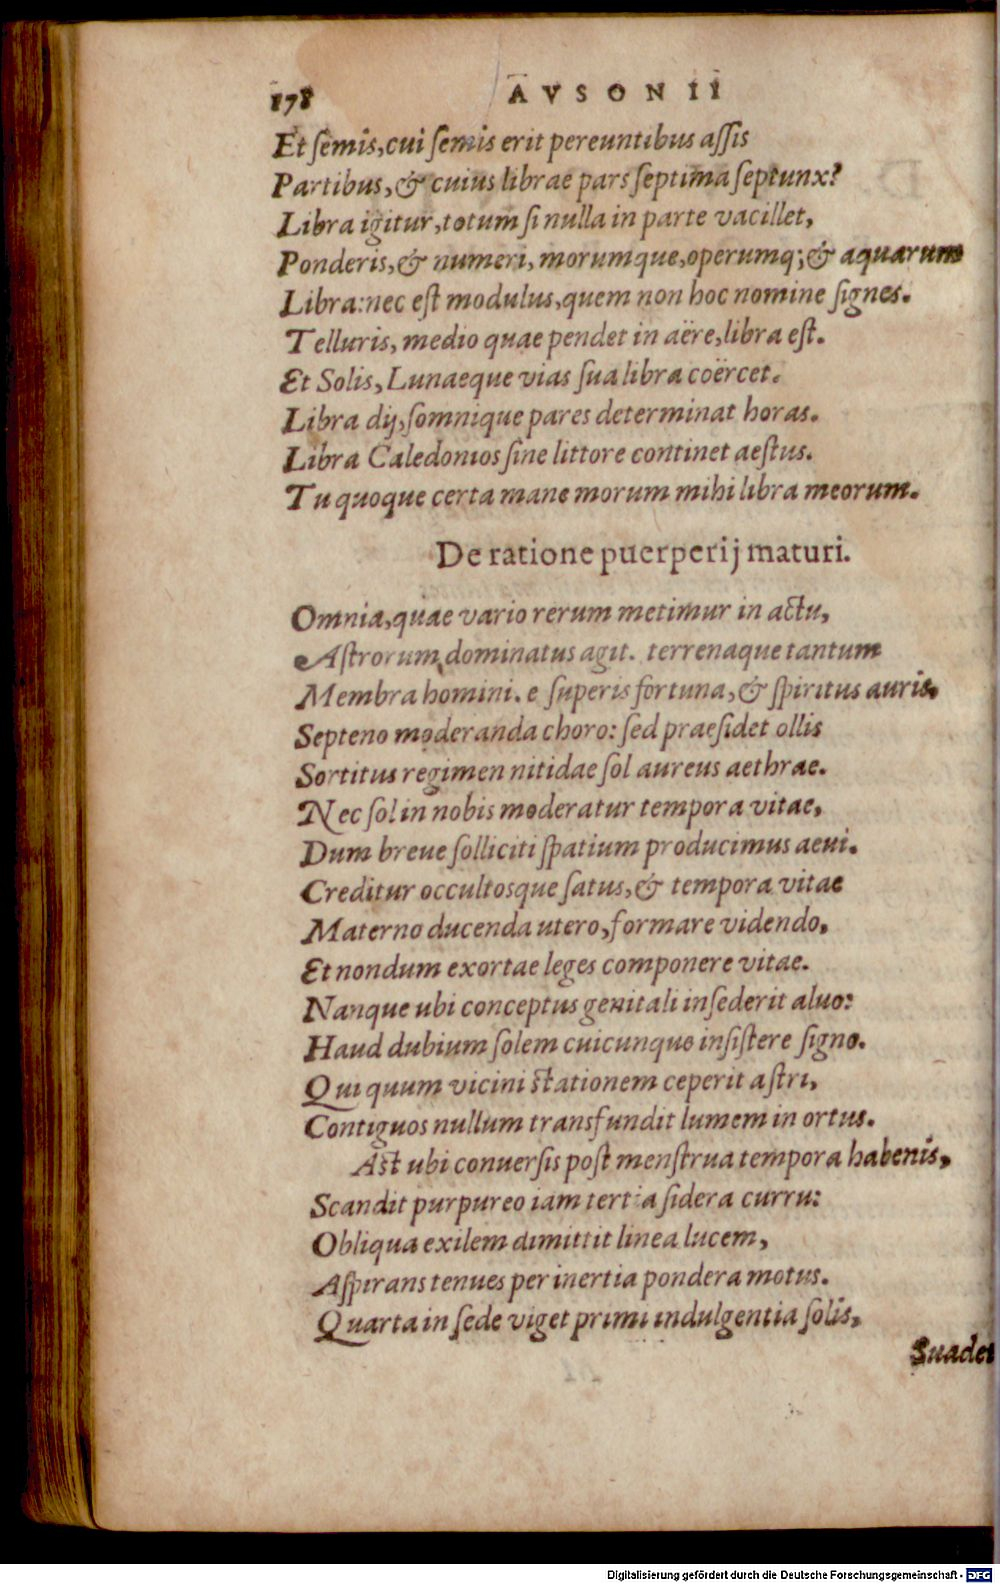 178 AVSONII
Et ſemis, cui ſemis erit pereuntibus aſſis
Partibus, & cuius librae pars ſeptima ſeptunx?
Libra igitur, totum ſi nulla in parte vacillet,
Ponderis, & numeri, morumque, operumq; & aquarum
Libra: nec eſt modulus, quem non hoc nomine ſignes.
Telluris, medio quae pendet in aëre, libra eſt.
Et Solis, Lunaeque vias ſua libra coërcet.
Libra dij, ſomnique pares determinat horas.
Libra Caledonios ſine littore continet aeſtus.
Tu quoque certa mane morum mihi libra meorum.
De ratione puerperij maturi.
Omnia, quae vario rerum metimur in actu,
Aſtrorum dominatus agit. terrenaque tantum
Membra homini. e ſuperis fortuna, & ſpiritus auris,
Septeno moderanda choro: ſed praeſidet ollis
Sortitus regimen nitidae ſol aureus aethrae.
Nec ſol in nobis moderatur tempora vitae,
Dum breue ſolliciti ſpatium producimus aeui.
Creditur occultosque ſatus, & tempora vitae
Materno ducenda utero, formare videndo,
Et nondum exortae leges componere vitae.
Nanque ubi conceptus genitali inſederit aluo:
Haud dubium ſolem cuicunque inſiſtere ſigno.
Qui quum vicini ſtationem ceperit aſtri,
Contiguos nullum transfundit lumem in ortus.
Aſt ubi conuerſis poſt menſtrua tempora habenis,
Scandit purpureo iam tertia ſidera curru:
Obliqua exilem dimittit linea lucem,
Aſpirans tenues per inertia pondera motus.
Quarta in ſede viget primi indulgentia ſolis,
Suadet
Digitalisierung gefördert durch die Deutsche Forschungsgemeinschaft - DFG